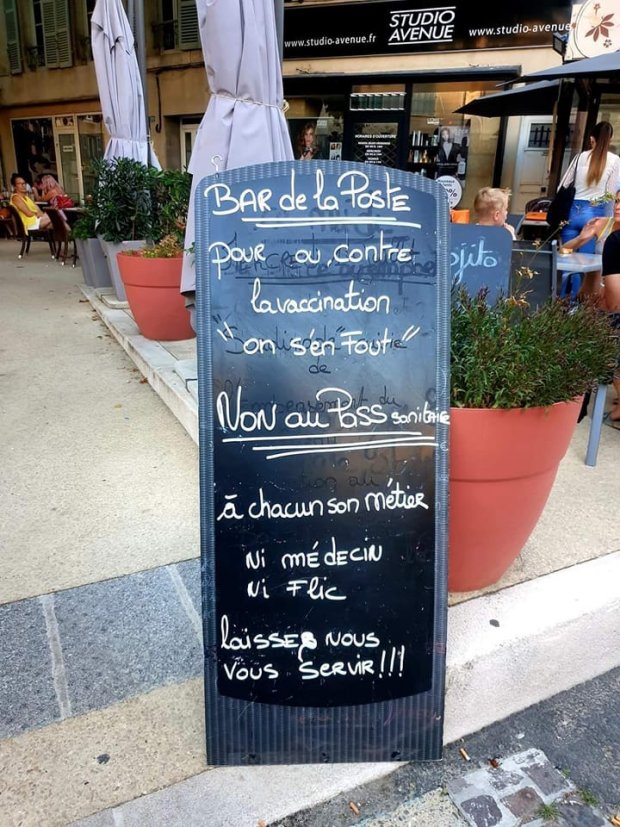 www.studio-avenue.fr
STUDIO
AVENUE
www.studio-avenue
BAR de la Poste
pour ou contre
la vaccination
"on s'en Fout"
NON au Pass sanitaire
à chacun son métier
Ni médecin
Ni Flic
laisses nous
vous servir!!!
ojito